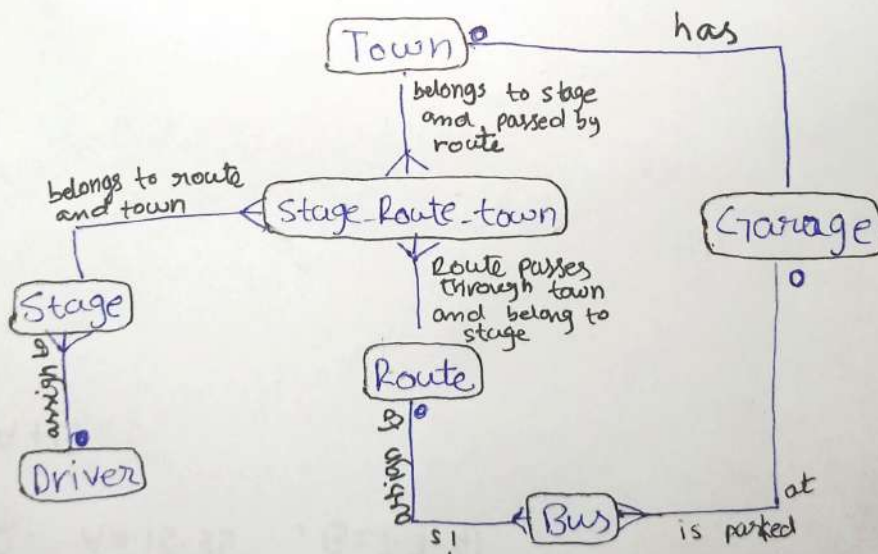 Town
has
belongs to stage
and passed by
route
belongs to route
and town
Stage_Route_town
Garage
Route passes
through town
and belong to
stage
Stage
Route
Driver
Bus
at
is parked